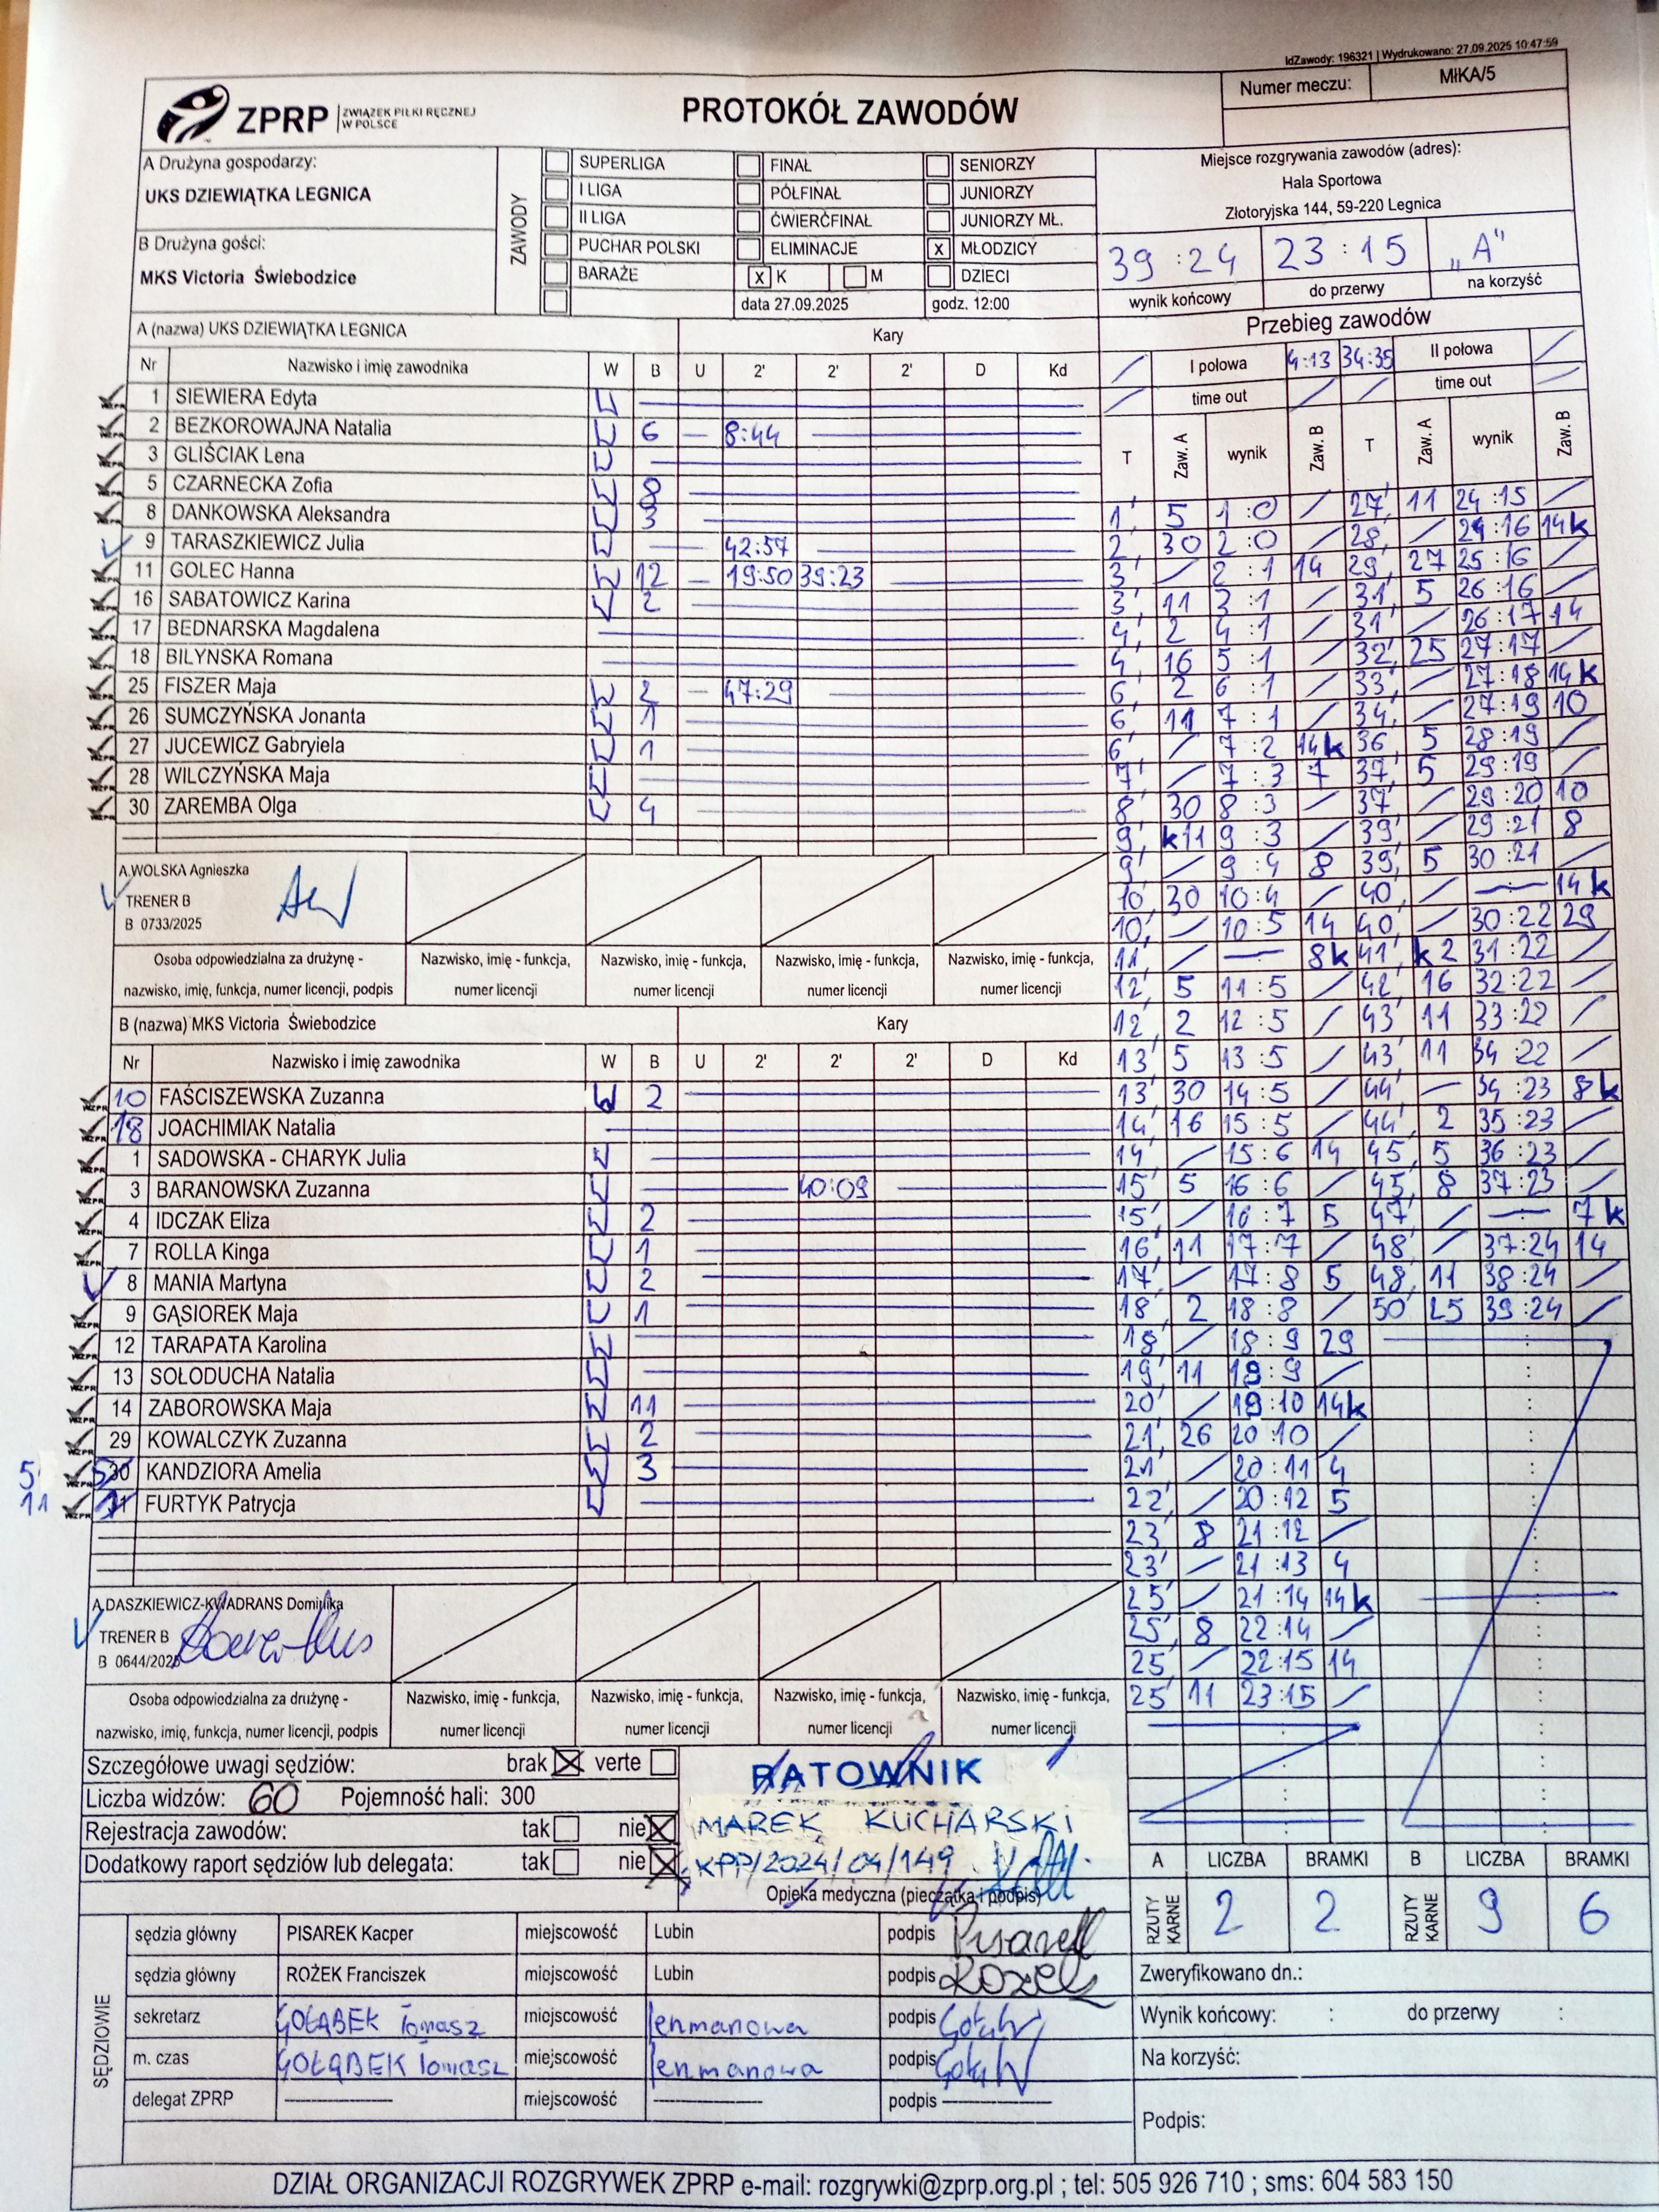 IdZawody: 196321 | Wydrukowano: 27.09.2025 10:47:59
ZPRP ZWIĄZEK PIŁKI RĘCZNEJ W POLSCE
PROTOKÓŁ ZAWODÓW
Numer meczu: MłKA/5
A Drużyna gospodarzy:
UKS DZIEWIĄTKA LEGNICA
B Drużyna gości:
MKS Victoria Świebodzice
ZAWODY
SUPERLIGA FINAŁ SENIORZY
I LIGA PÓŁFINAŁ JUNIORZY
II LIGA ĆWIERĆFINAŁ JUNIORZY MŁ.
PUCHAR POLSKI ELIMINACJE x MŁODZICY
BARAŻE x K M DZIECI
data 27.09.2025 godz. 12:00
Miejsce rozgrywania zawodów (adres):
Hala Sportowa
Złotoryjska 144, 59-220 Legnica
39:24 23:15 „A"
wynik końcowy do przerwy na korzyść
A (nazwa) UKS DZIEWIĄTKA LEGNICA Kary
Nr Nazwisko i imię zawodnika W B U 2' 2' 2' D Kd
1 SIEWIERA Edyta
2 BEZKOROWAJNA Natalia 6 8:44
3 GLIŚCIAK Lena
5 CZARNECKA Zofia 8
8 DANKOWSKA Aleksandra 3
9 TARASZKIEWICZ Julia 42:57
11 GOLEC Hanna 12 19:50 39:23
16 SABATOWICZ Karina 2
17 BEDNARSKA Magdalena
18 BILYNSKA Romana
25 FISZER Maja 2 47:29
26 SUMCZYŃSKA Jonanta 1
27 JUCEWICZ Gabryiela 1
28 WILCZYŃSKA Maja
30 ZAREMBA Olga 4
A.WOLSKA Agnieszka
TRENER B
B 0733/2025
Osoba odpowiedzialna za drużynę - Nazwisko, imię - funkcja, Nazwisko, imię - funkcja, Nazwisko, imię - funkcja, Nazwisko, imię - funkcja,
nazwisko, imię, funkcja, numer licencji, podpis numer licencji numer licencji numer licencji numer licencji
B (nazwa) MKS Victoria Świebodzice Kary
Nr Nazwisko i imię zawodnika W B U 2' 2' 2' D Kd
10 FAŚCISZEWSKA Zuzanna 2
18 JOACHIMIAK Natalia
1 SADOWSKA - CHARYK Julia
3 BARANOWSKA Zuzanna 40:09
4 IDCZAK Eliza 2
7 ROLLA Kinga 1
8 MANIA Martyna 2
9 GĄSIOREK Maja 1
12 TARAPATA Karolina
13 SOŁODUCHA Natalia
14 ZABOROWSKA Maja 11
29 KOWALCZYK Zuzanna 2
5 KANDZIORA Amelia 3
11 FURTYK Patrycja
A.DASZKIEWICZ-KWADRANS Dominika
TRENER B
B 0644/2025
Osoba odpowiedzialna za drużynę - Nazwisko, imię - funkcja, Nazwisko, imię - funkcja, Nazwisko, imię - funkcja, Nazwisko, imię - funkcja,
nazwisko, imię, funkcja, numer licencji, podpis numer licencji numer licencji numer licencji numer licencji
Przebieg zawodów
I połowa 4:13 34:35 II połowa
time out time out
T Zaw. A wynik Zaw. B T Zaw. A wynik Zaw. B
1' 5 1:0 / 27' 11 24:15 /
2' 30 2:0 / 28' / 24:16 14k
3' / 2:1 14 29' 27 25:16 /
3' 11 3:1 / 31' 5 26:16 /
4' 2 4:1 / 31' / 26:17 14
4' 16 5:1 / 32' 25 27:17 /
6' 2 6:1 / 33' / 27:18 14k
6' 11 7:1 / 34' / 27:19 10
6' / 7:2 14k 36' 5 28:19 /
7' / 7:3 7 37' 5 29:19 /
8' 30 8:3 / 37' / 29:20 10
9' k11 9:3 / 39' / 29:21 8
9' / 9:4 8 39' 5 30:21 /
10' 30 10:4 / 40' / — 14k
10' / 10:5 14 40' / 30:22 29
11' / — 8k 41' k2 31:22 /
12' 5 11:5 / 42' 16 32:22 /
12' 2 12:5 / 43' 11 33:22 /
13' 5 13:5 / 43' 11 34:22 /
13' 30 14:5 / 44' — 34:23 8k
14' 16 15:5 / 44' 2 35:23 /
14' / 15:6 14 45' 5 36:23 /
15' 5 16:6 / 45' 8 37:23 /
15' / 16:7 5 47' / — 7k
16' 11 17:7 / 48' / 37:24 14
17' / 17:8 5 48' 11 38:24 /
18' 2 18:8 / 50' 25 39:24 /
18' / 18:9 29
19' 11 19:9 /
20' / 19:10 14k
21' 26 20:10 /
21' / 20:11 4
22' / 20:12 5
23' 8 21:12 /
23' / 21:13 4
25' / 21:14 14k
25' 8 22:14 /
25' / 22:15 14
25' 11 23:15 /
Szczegółowe uwagi sędziów: brak verte
Liczba widzów: 60 Pojemność hali: 300
Rejestracja zawodów: tak nie
Dodatkowy raport sędziów lub delegata: tak nie
RATOWNIK
MAREK KUCHARSKI
KPP/2024/04/149
Opieka medyczna (pieczątka i podpis)
A LICZBA BRAMKI B LICZBA BRAMKI
RZUTY KARNE 2 2 RZUTY KARNE 9 6
SĘDZIOWIE
sędzia główny PISAREK Kacper miejscowość Lubin podpis Pisarek
sędzia główny ROŻEK Franciszek miejscowość Lubin podpis Rożek
sekretarz GOŁĄBEK Tomasz miejscowość podpis
m. czas GOŁĄBEK Tomasz miejscowość podpis
delegat ZPRP miejscowość podpis
Zweryfikowano dn.:
Wynik końcowy: : do przerwy :
Na korzyść:
Podpis:
DZIAŁ ORGANIZACJI ROZGRYWEK ZPRP e-mail: rozgrywki@zprp.org.pl ; tel: 505 926 710 ; sms: 604 583 150